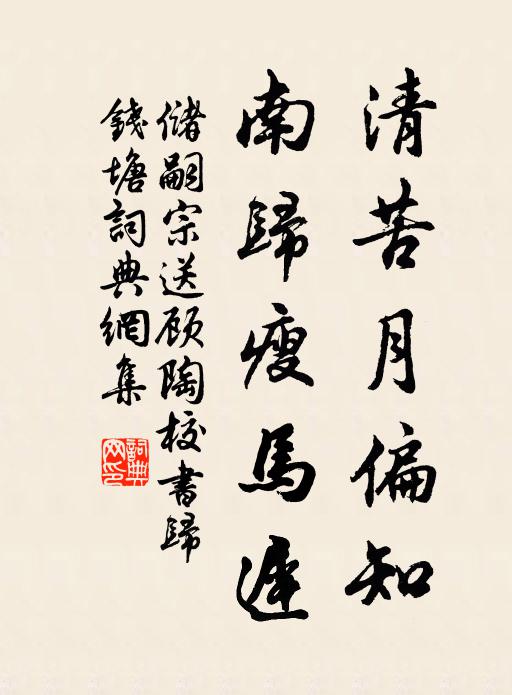 清苦月偏知
南歸瘦馬遲
儲嗣宗送顾陶校書歸
錢塘詞典網集
詞典
网印